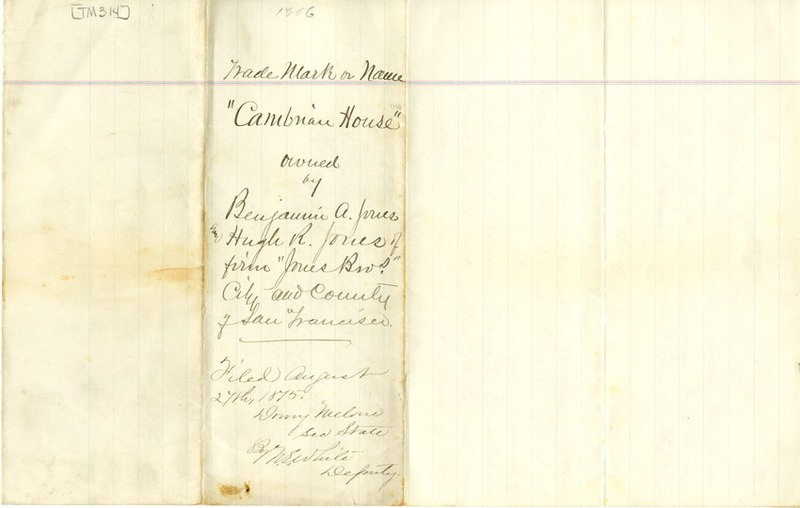 [TM314]
1806
Trade Mark or Name
"Cambrian House"
owned
by
Benjamin A. Jones
& Hugh R. Jones of
firm "Jones Bros."
City and County
of San Francisco.
Filed August
27th, 1875.
Drury Melone
Sec State
By
Deputy.